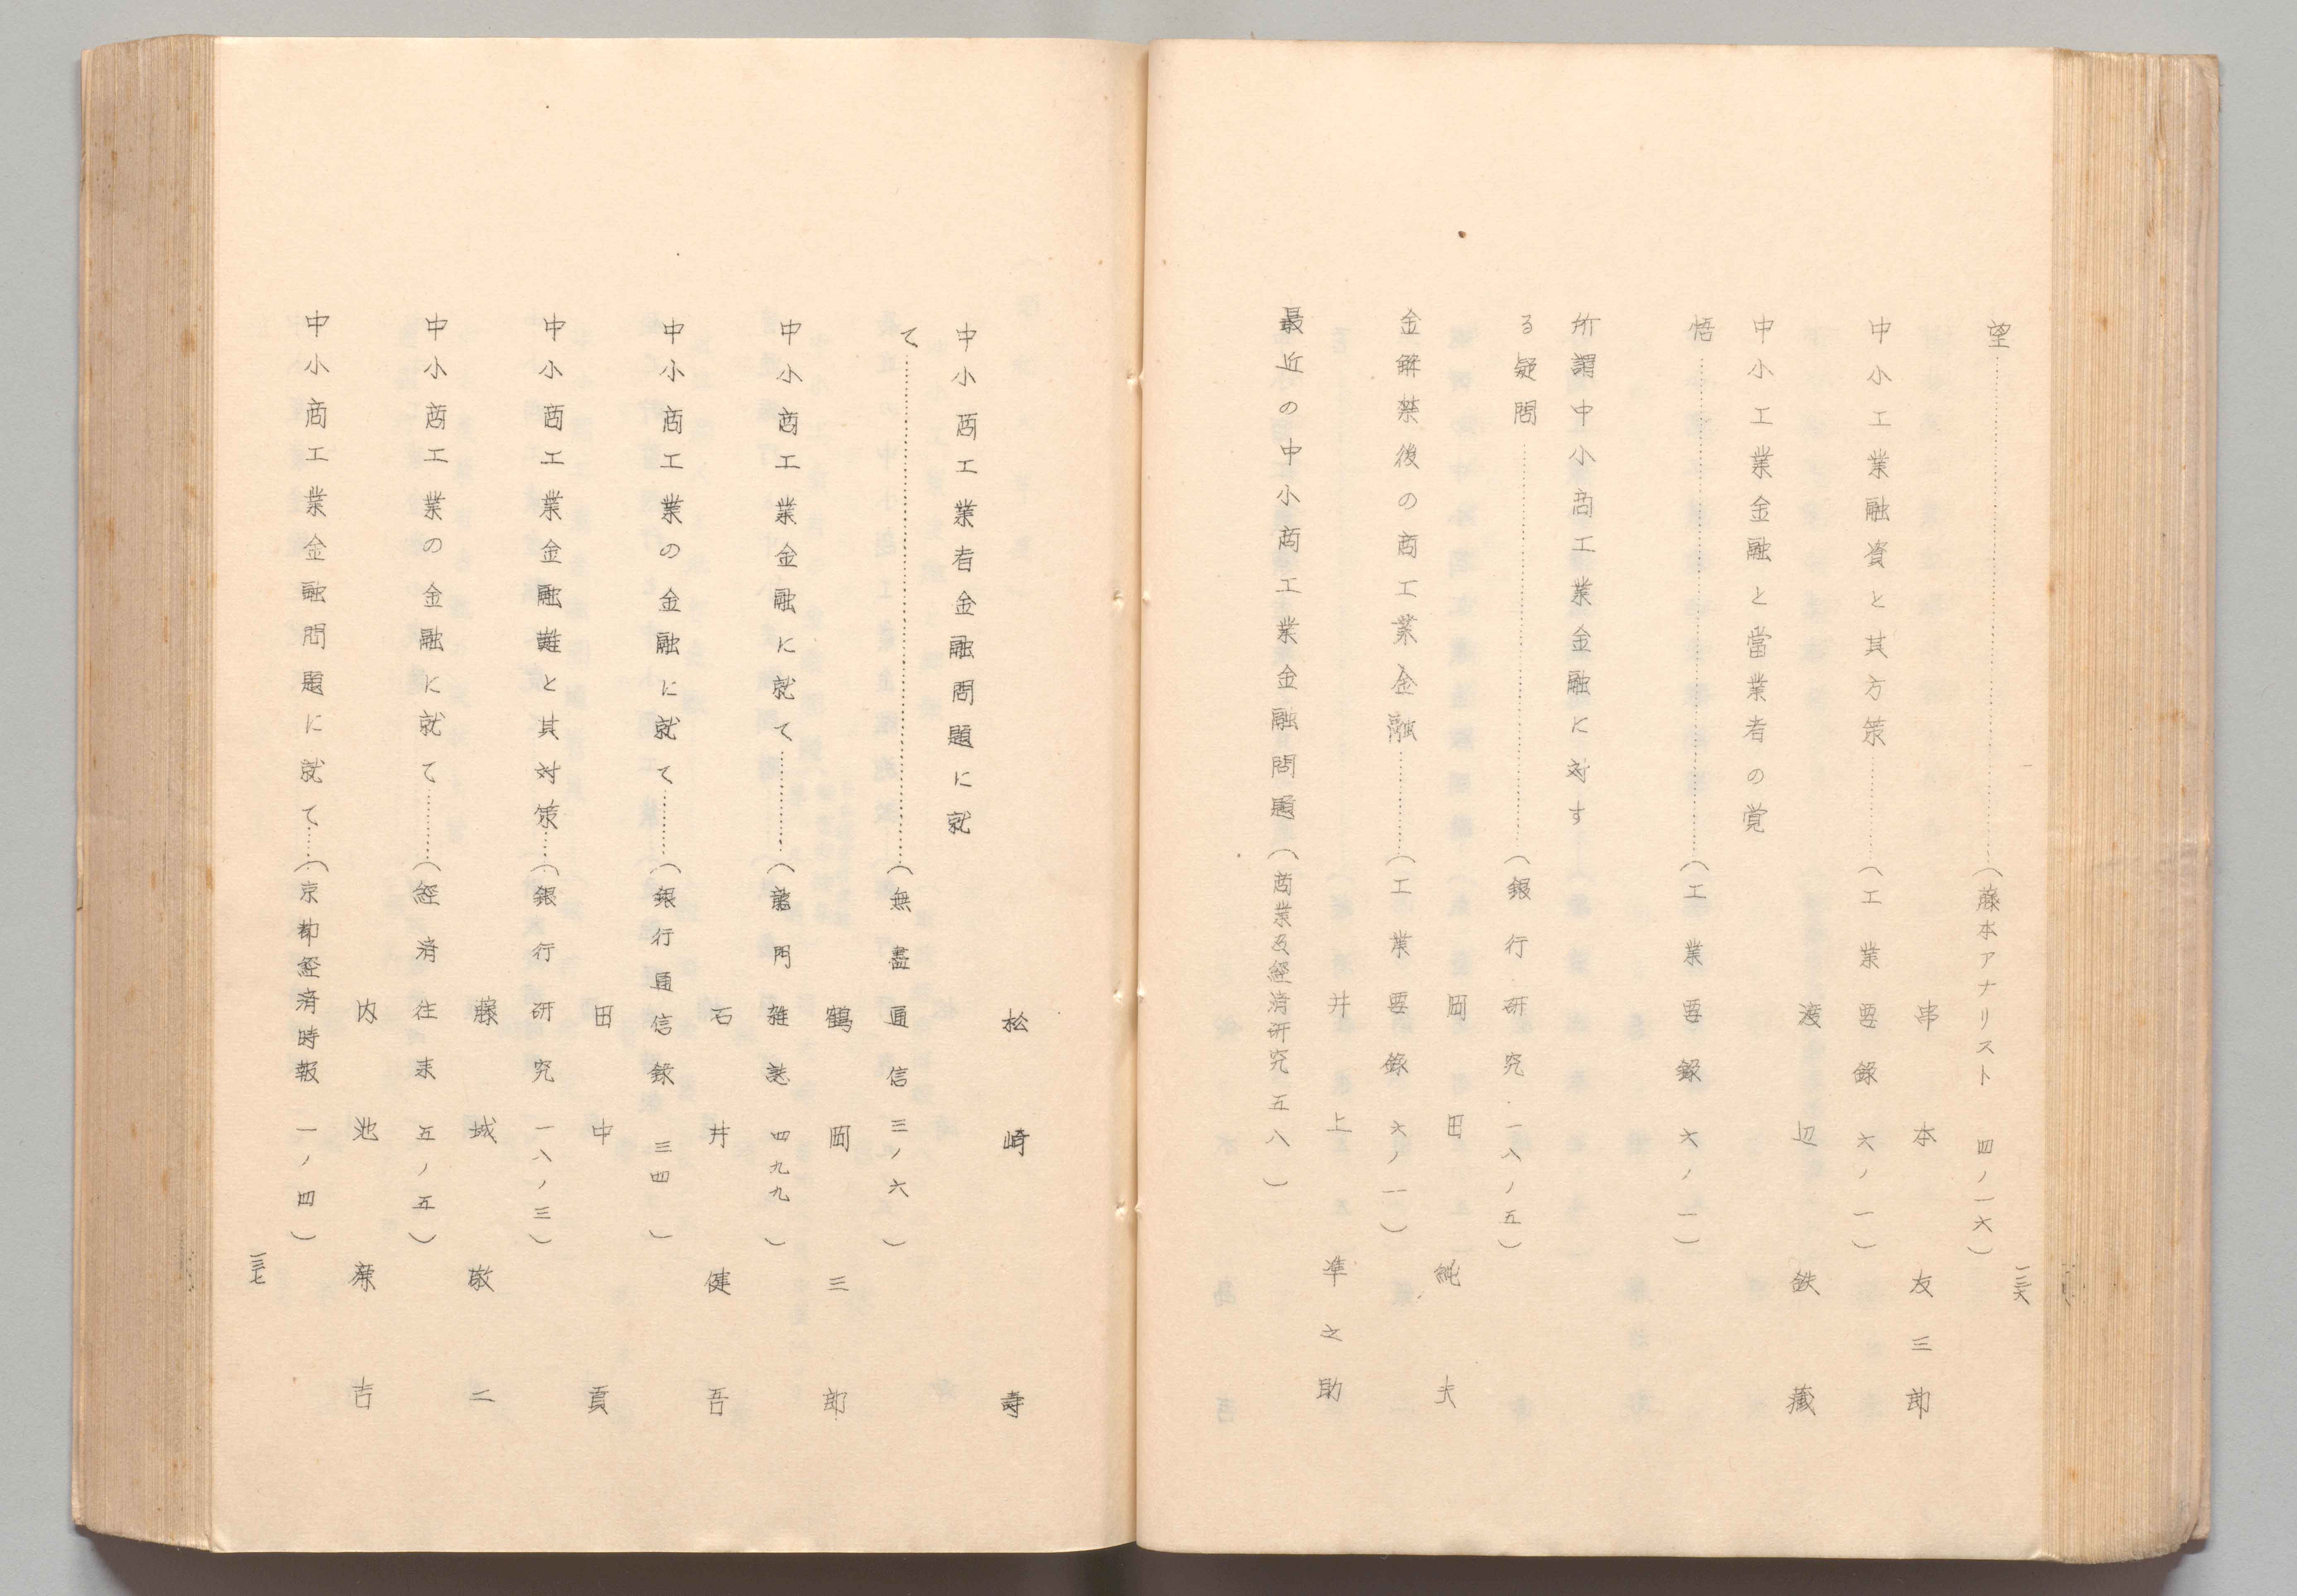 望……………(藤本アナリスト 四ノ一六)
串本友三郎
中小工業融資と其方策………(工業要録 六ノ一)
渡辺鉄蔵
中小工業金融と當業者の覚
悟……………(工業要録 六ノ一)
所謂中小商工業金融に対す
る疑問……………(銀行研究 一八ノ五)
岡田純夫
金解禁後の商工業金融………(工業要錄 六ノ一)
井上準之助
最近の中小商工業金融問題(商業及経済研究 五八)
一三六
松崎寿
中小商工業者金融問題に就
て……………(無盡通信 三ノ六)
鶴岡三郎
中小商工業金融に就て………(龍門雑誌 四九九)
石井健吾
中小商工業の金融に就て………(銀行通信録 三四)
田中貢
中小商工業金融難と其対策……(銀行研究 一八ノ三)
藤城敬二
中小商工業の金融に就て………(経済往来 五ノ五)
内池廉吉
中小商工業金融問題に就て……(京都経済時報 一ノ四)
一三七